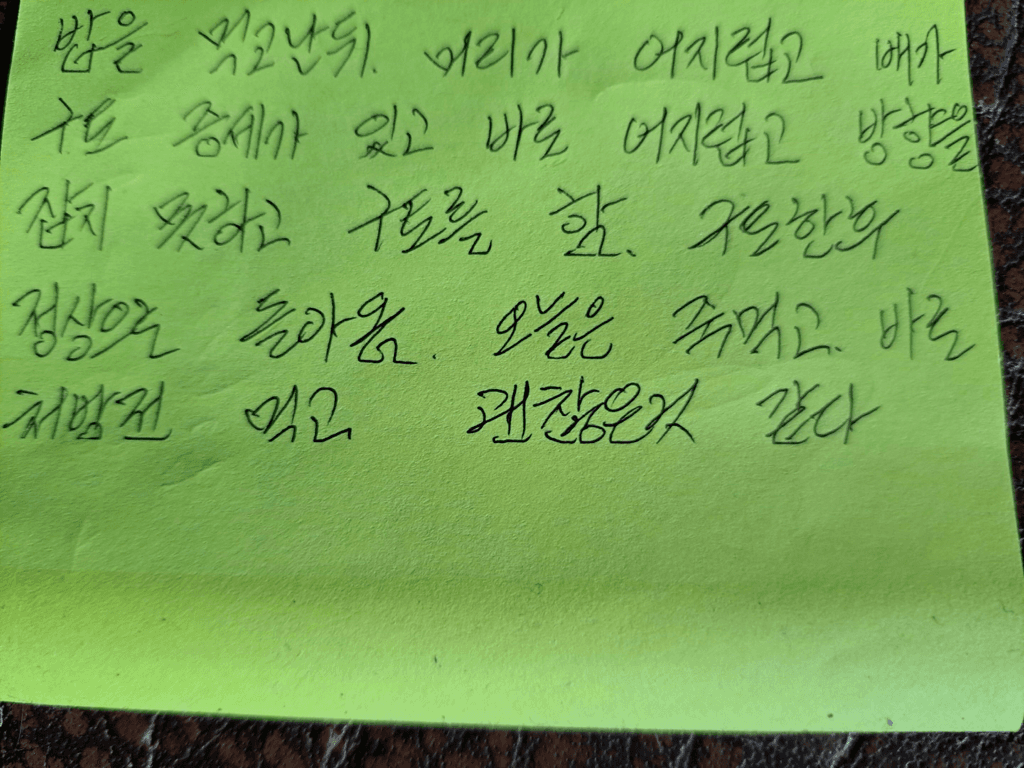 밥을 먹고난뒤. 머리가 어지럽고 배가
구토 증세가 있고 바로 어지럽고 방향을
잡지 못하고 구토를 함. 구토한후
정상으로 돌아옴. 오늘은 죽먹고. 바로
처방전 먹고 괜찮은것 같다